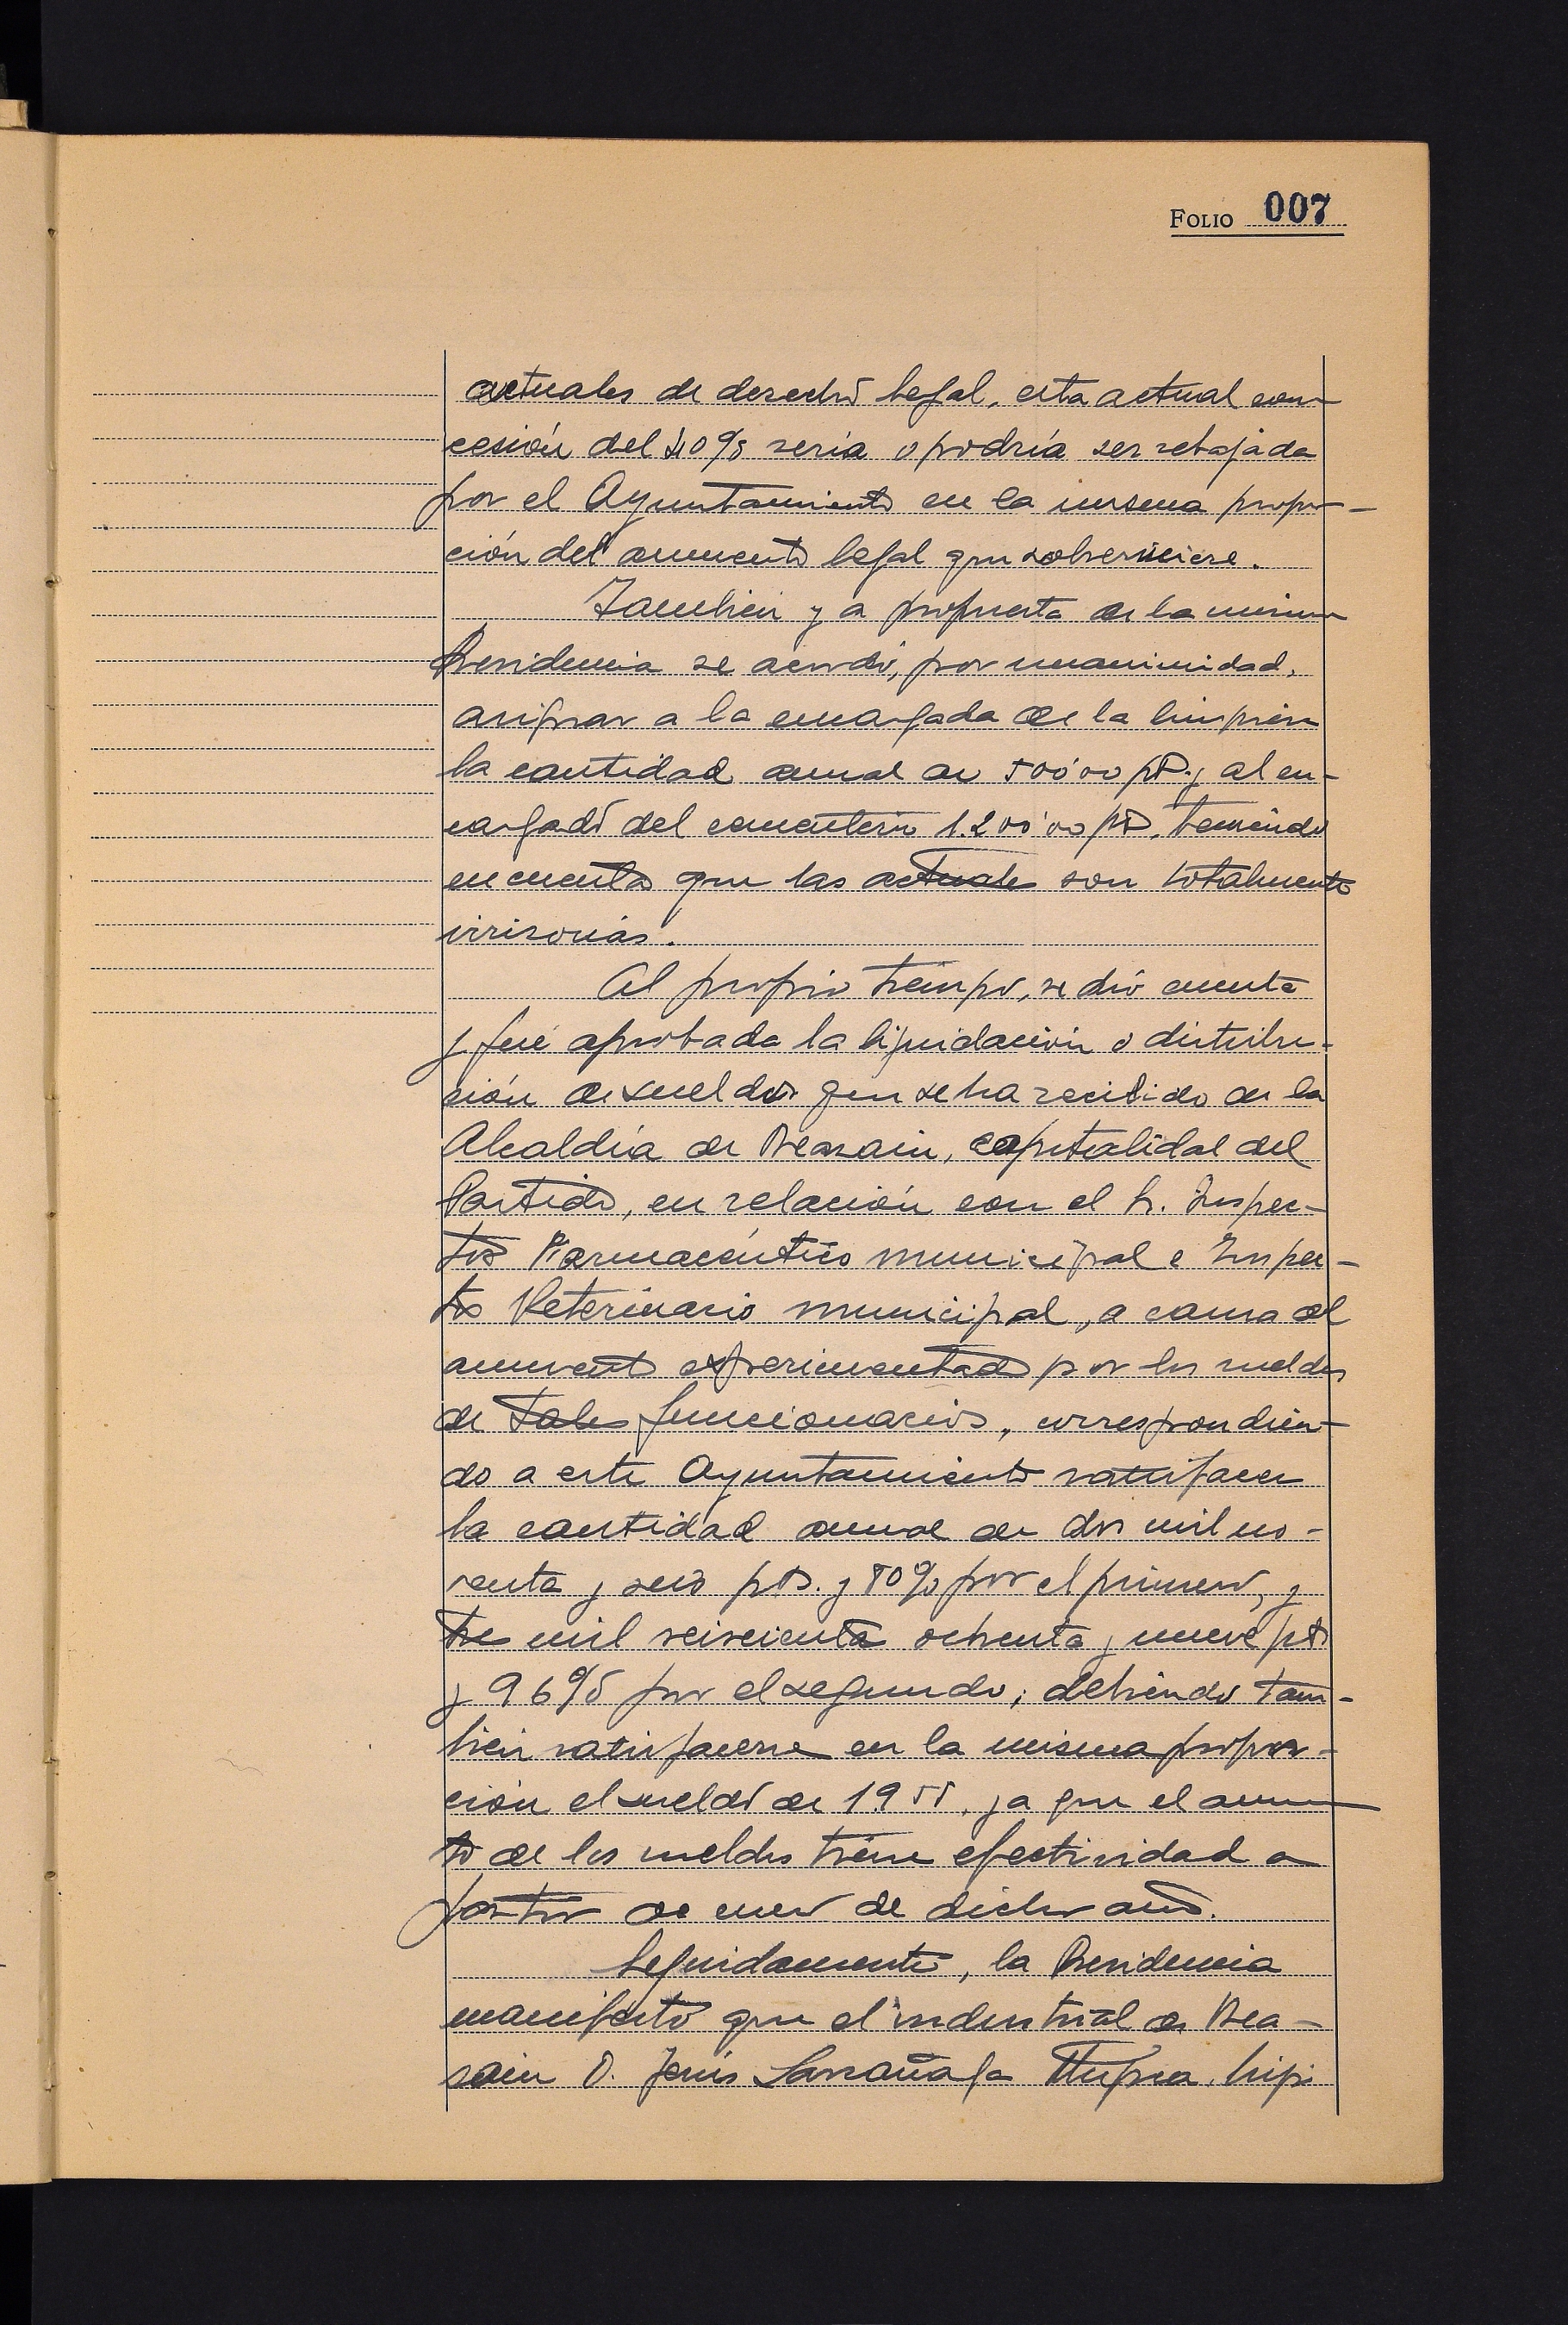 FOLIO 007
actuales de derecho legal, esta actual con-
cesión del 40% sería o podría ser rebajada
por el Ayuntamiento en la misma propor-
ción del aumento legal que sobreviniere.
También y a propuesta de la misma
Presidencia se acordó, por unanimidad,
asignar a la encargada de la limpieza
la cantidad anual de 500'00 pts. y al en-
cargado del cementerio 1.200'00 pts, teniendo
en cuenta que las actuales son totalmente
irrisorias.
Al propio tiempo, se dió cuenta
y fué aprobada la liquidación o distribu-
ción de sueldos que se ha recibido de la
Alcaldía de Beasain, capitalidad del
Partido, en relación con el Sr. Inspec-
tor Farmacéutico municipal e Inspec-
tor Veterinario municipal, a causa del
aumento experimentado por los sueldos
de tales funcionarios, correspondien-
do a este Ayuntamiento satisfacer
la cantidad anual de dos mil no-
venta y seis pts. y 80% por el primero, y
tres mil seiscientas ochenta y nueve pts
y 96% por el segundo; debiendo tam-
bién satisfacerse en la misma propor-
ción el sueldo de 1955, ya que el aumen-
to de los sueldos tiene efectividad a
partir de enero de dicho año.
Seguidamente, la Presidencia
manifestó que el industrial de Bea-
sain D. Jesús Larrañaga